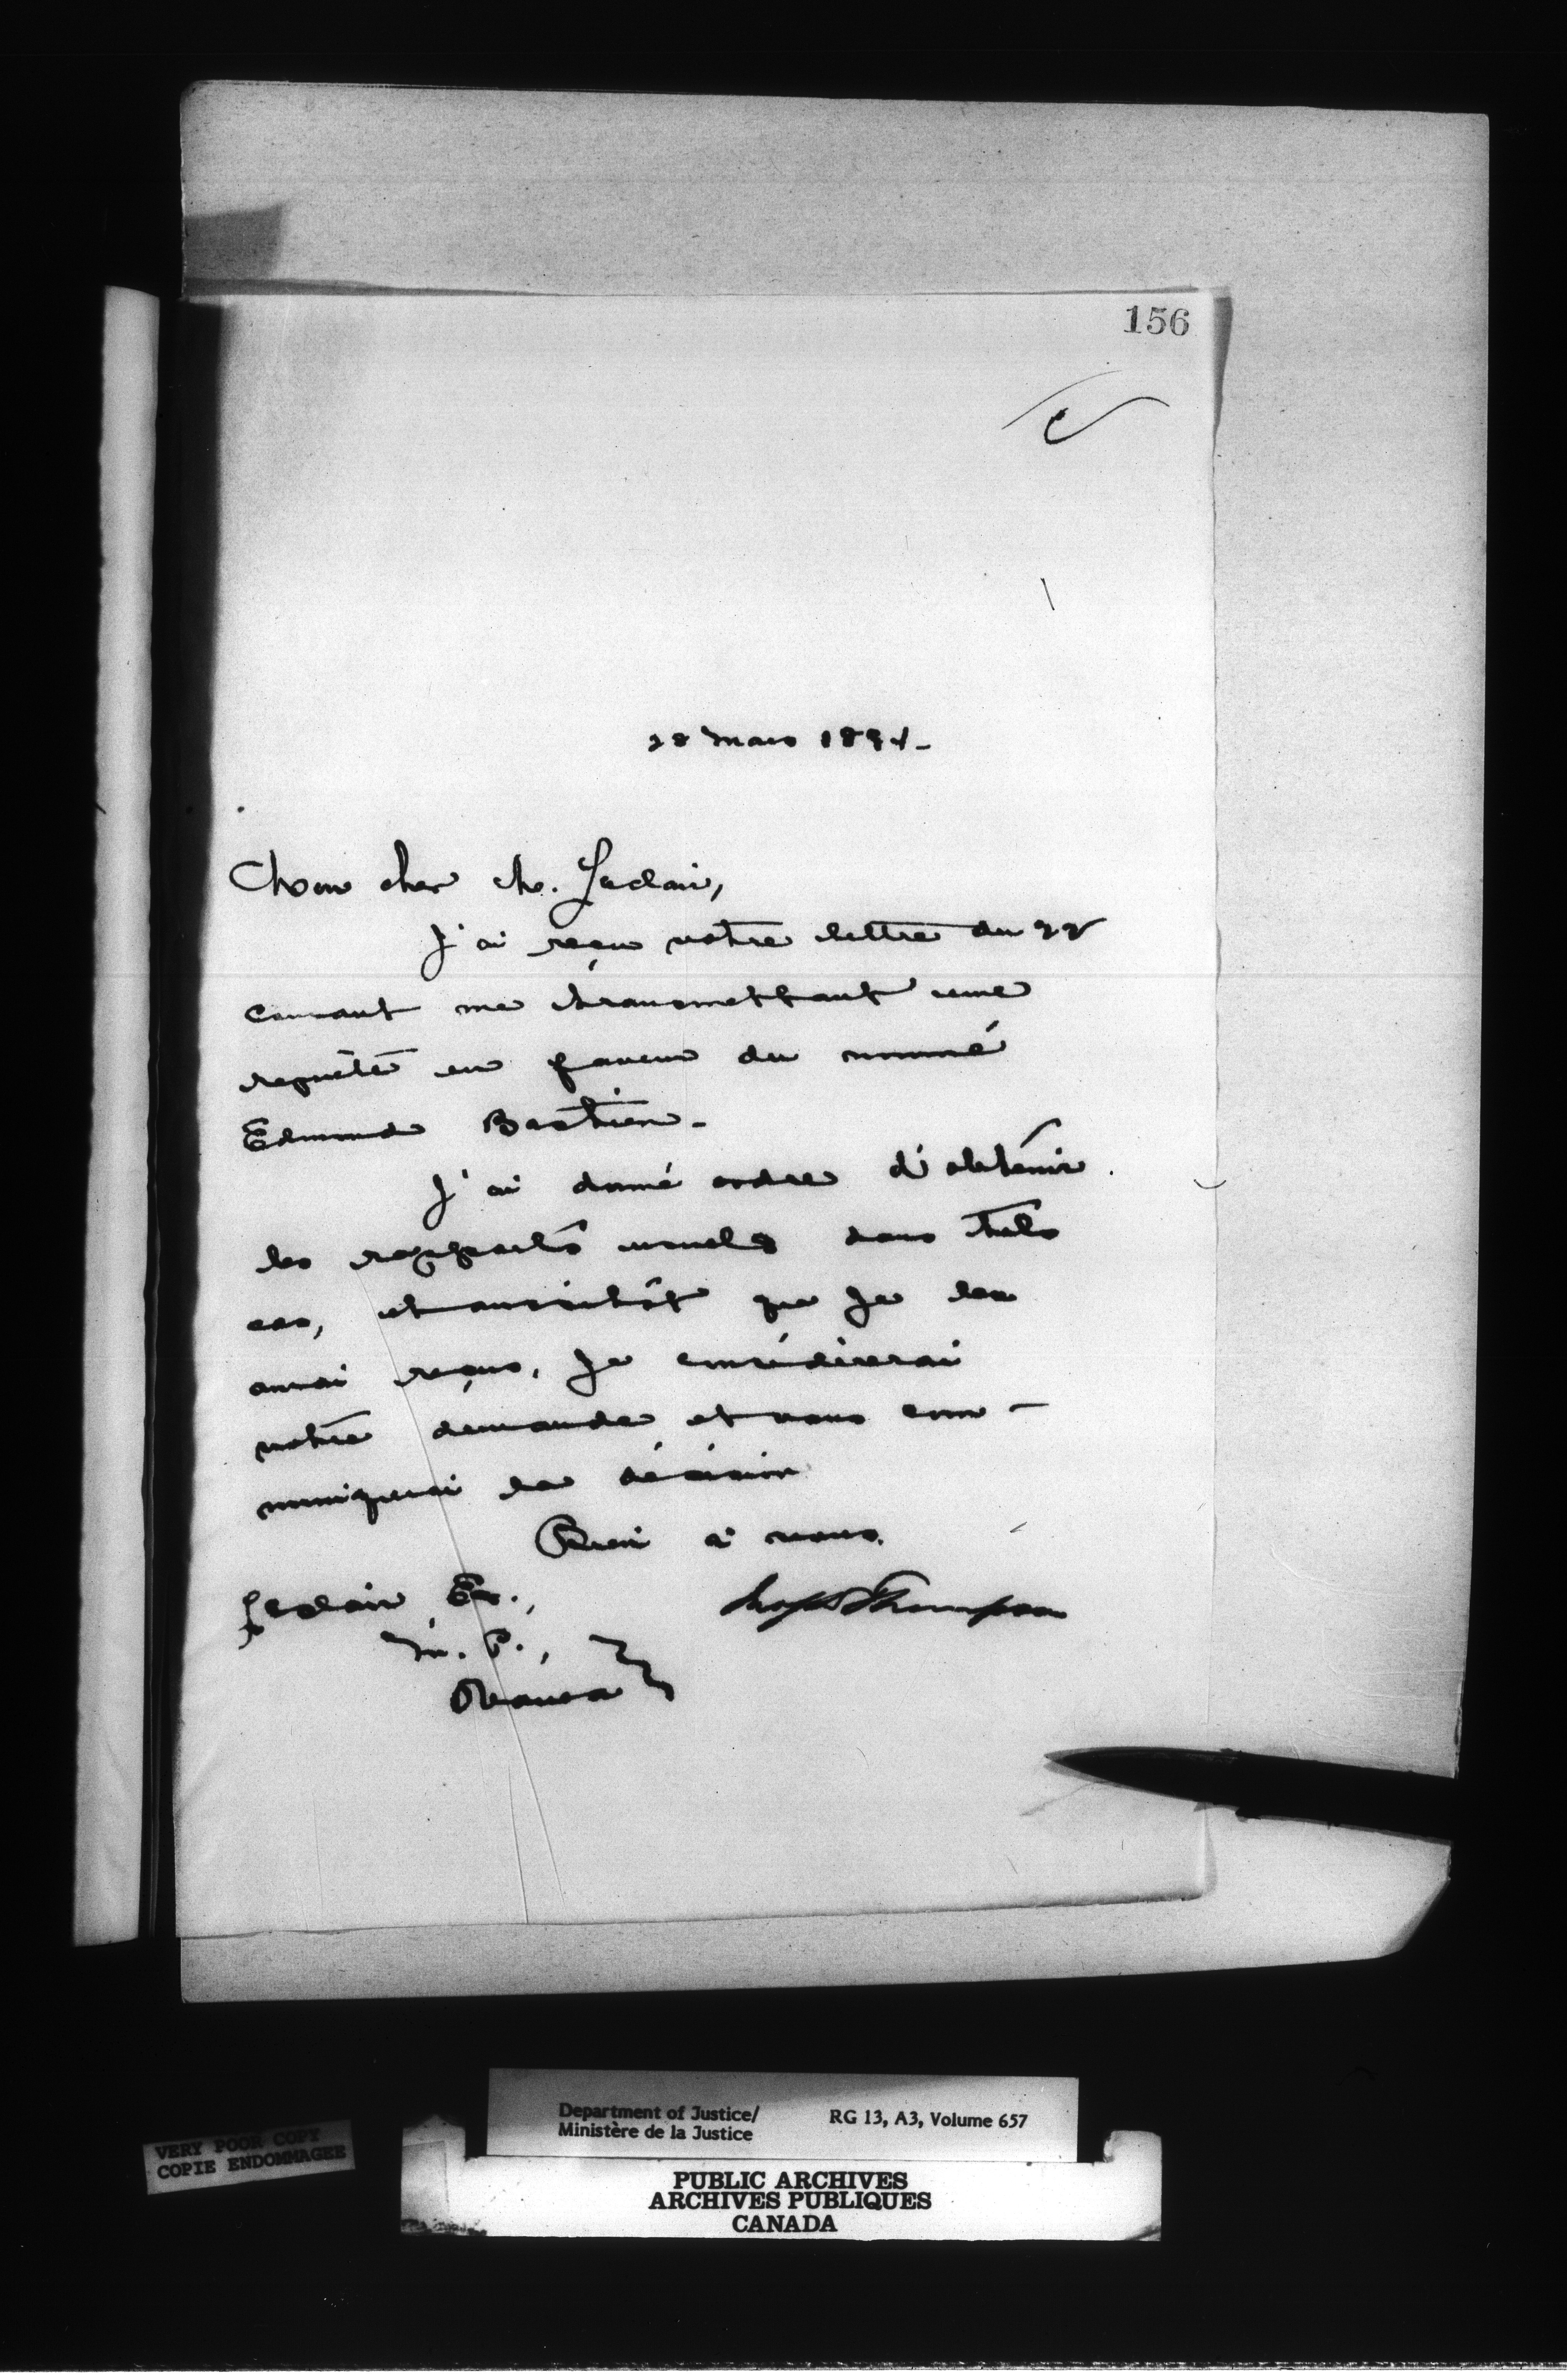 156
28 mars 1894-
Mon cher M. Leclair,
J'ai reçu votre lettre du 22
courant me transmettant une
requête en faveur du nommé
Edmond Bastien-
J'ai donné ordre d'obtenir
les rapports usuels dans tels
cas, et aussitôt que je les
aurai reçus, je considérerai
votre demande et vous com-
muniquerai la décision
Bien à vous.
Leclair Er.,
M. P.,
Ottawa
Jno S D Thompson
VERY POOR COPY
COPIE ENDOMMAGEE
Department of Justice/
Ministère de la Justice
RG 13, A3, Volume 657
PUBLIC ARCHIVES
ARCHIVES PUBLIQUES
CANADA